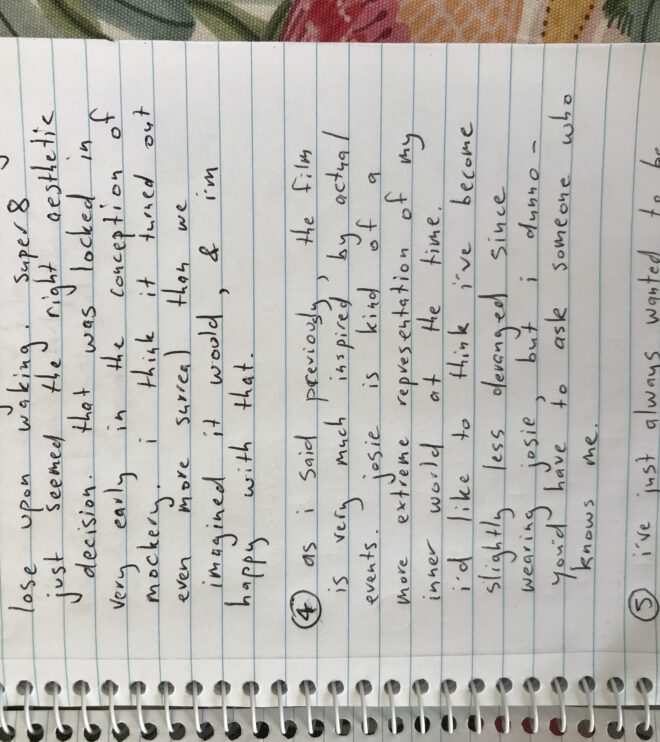 lose upon waking. super 8
just seemed the right aesthetic
decision. that was locked in
very early in the conception of
mockery. i think it turned out
even more surreal than we
imagined it would, & im
happy with that.
④ as i said previously, the film
is very much inspired by actual
events. josie is kind of a
more extreme representation of my
inner world at the time.
i'd like to think i've become
slightly less deranged since
wearing josie, but i dunno -
you'd have to ask someone who
knows me.
⑤ i've just always wanted to be